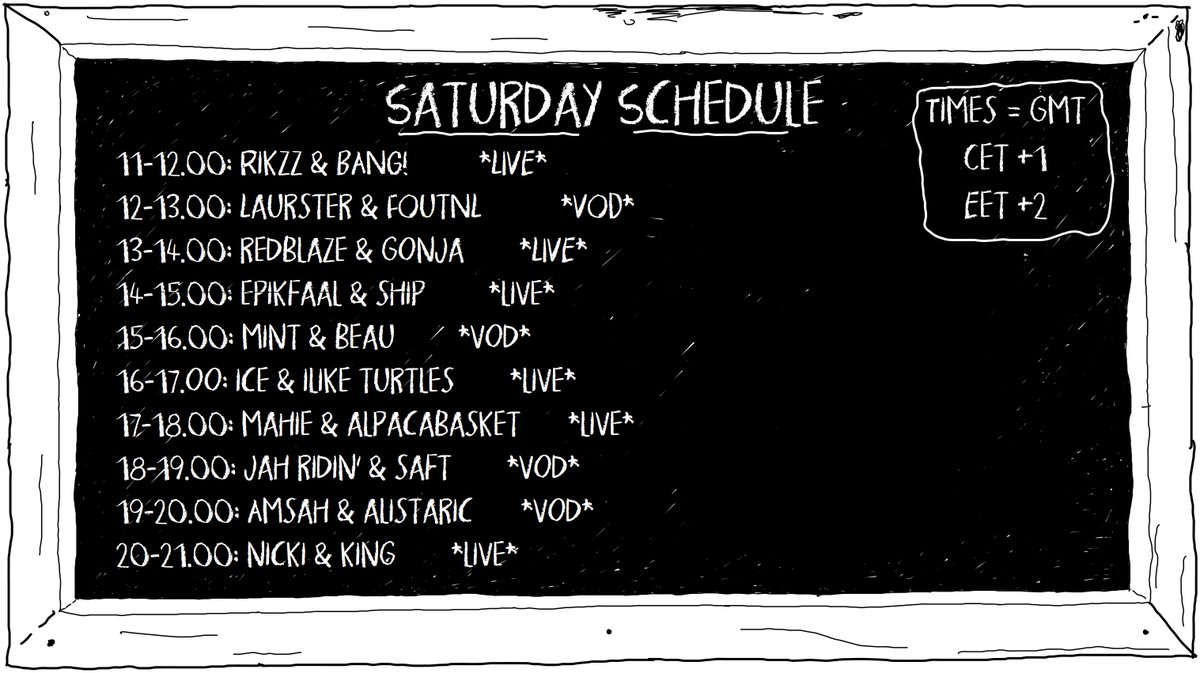 SATURDAY SCHEDULE
TIMES = GMT
CET +1
EET +2
11-12.00: RIKZZ & BANG! *LIVE*
12-13.00: LAURSTER & FOUTNL *VOD*
13-14.00: REDBLAZE & GONJA *LIVE*
14-15.00: EPIKFAAL & SHIP *LIVE*
15-16.00: MINT & BEAU *VOD*
16-17.00: ICE & ILIKE TURTLES *LIVE*
17-18.00: MAHIE & ALPACABASKET *LIVE*
18-19.00: JAH RIDIN' & SAFT *VOD*
19-20.00: AMSAH & ALISTARIC *VOD*
20-21.00: NICKI & KING *LIVE*